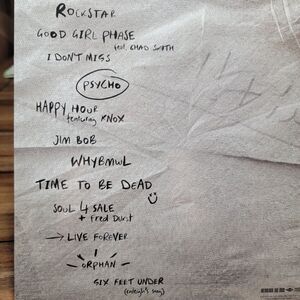 ROCKSTAR
GOOD GIRL PHASE
feat. CHAD SMITH
I DON'T MISS
PSYCHO
HAPPY HOUR
featuring KNOX
JIM BOB
WHYBMWL
TIME TO BE DEAD
SOUL 4 SALE
+ Fred Durst
→ LIVE FOREVER
ORPHAN
SIX FEET UNDER